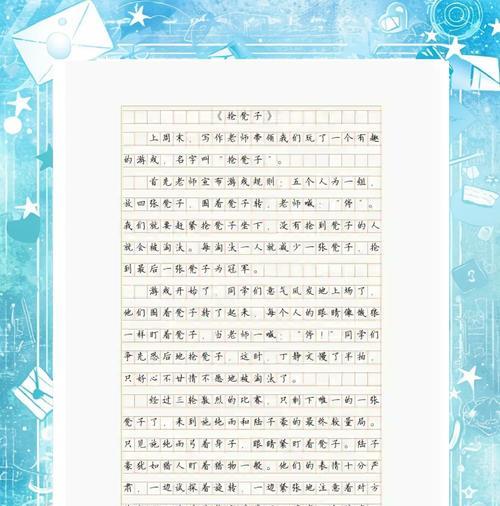 《抢凳子》
上周末，写作老师带领我们玩了一个有趣
的游戏，名字叫“抢凳子”。
首先老师宣布游戏规则：五个人为一组，
放四张凳子，围着凳子转，老师喊：“停”。
我们就要赶紧抢凳子坐下，没有抢到凳子的人
就会被淘汰。每淘汰一人就减少一张凳子，抢
到最后一张凳子为冠军。
游戏开始了，同学们意气风发地上场了，
他们围着凳子转了起来，每个人的眼睛像饿狼
一样盯着凳子，当老师一喊：“停！”同学们
争先恐后地抢凳子，这时，丁静文慢了半拍，
只好心不甘情不愿地被淘汰了。
经过三轮激烈的比赛，只剩下唯一的一张
凳子了，来到施纯雨和陆子豪的最终较量局。
只见施纯雨弓着身子，眼睛紧盯着凳子。陆子
豪犹如猎人盯着猎物一般。他们的表情十分严
肃，一边试探着旋转，一边紧张地注意着对方